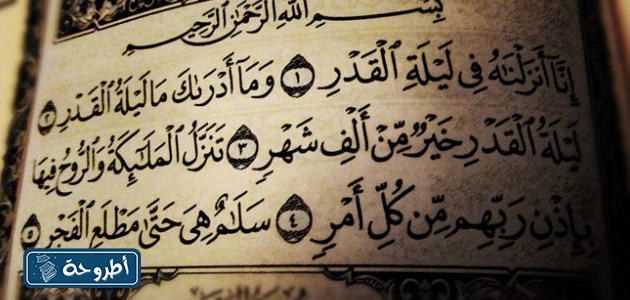 بِسْمِ اللَّهِ الرَّحْمَٰنِ الرَّحِيمِ
إِنَّآ أَنزَلْنَٰهُ فِى لَيْلَةِ ٱلْقَدْرِ ١ وَمَآ أَدْرَىٰكَ مَا لَيْلَةُ ٱلْقَدْرِ ٢
لَيْلَةُ ٱلْقَدْرِ خَيْرٌ مِّنْ أَلْفِ شَهْرٍ ٣ تَنَزَّلُ ٱلْمَلَٰٓئِكَةُ وَٱلرُّوحُ فِيهَا
بِإِذْنِ رَبِّهِم مِّن كُلِّ أَمْرٍ ٤ سَلَٰمٌ هِىَ حَتَّىٰ مَطْلَعِ ٱلْفَجْرِ ٥
أطروحة